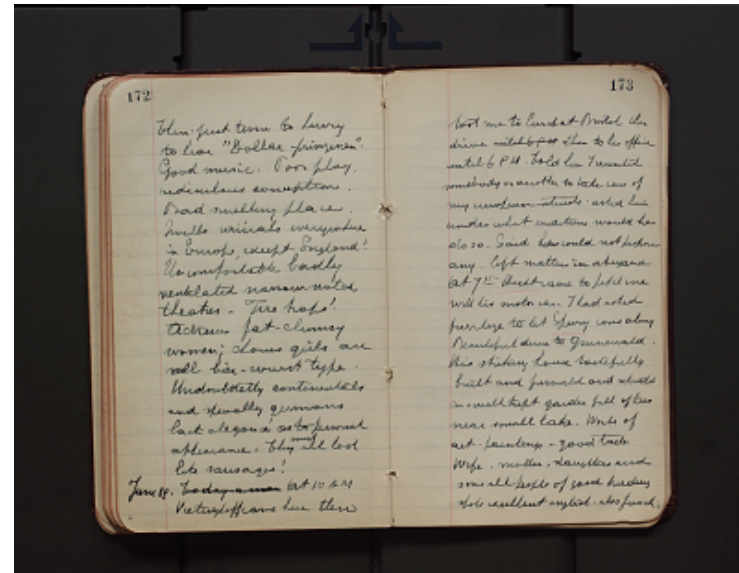 172
then just time to hurry
to hear "Dollar prinzessin".
Good music. Poor play.
ridiculous conception.
Bad smelling place.
Smells urinals everywhere
in Europe, except England!
Uncomfortable badly
ventilated narrow seated
theatre - Fire traps!
fat clumsy
women; chorus girls are
all type.
Undoubtedly continentals
and specially germans
lack elegance as to personal
appearance. They must all look
like sausages!
June 19. Today a man at 10 AM
came here then
173
took me to lunch at Bristol then
drive until 6 PM then to his office
until 6 P.M. Told him I wanted
somebody or another to take care of
my european asked him
under what conditions would he
do so. Said he could not propose
any. left matter in abeyance
at 7 came to fetch me
with his motor car. I had asked
privilege to let Speury come along
Beautiful drive to Grunewald.
His house tastefully
built and furnished and situated
in well kept garden full of trees
near small lake. Works of
art - paintings - good taste
Wife, mother, daughters and
sons all people of good breeding
spoke excellent english - also french,